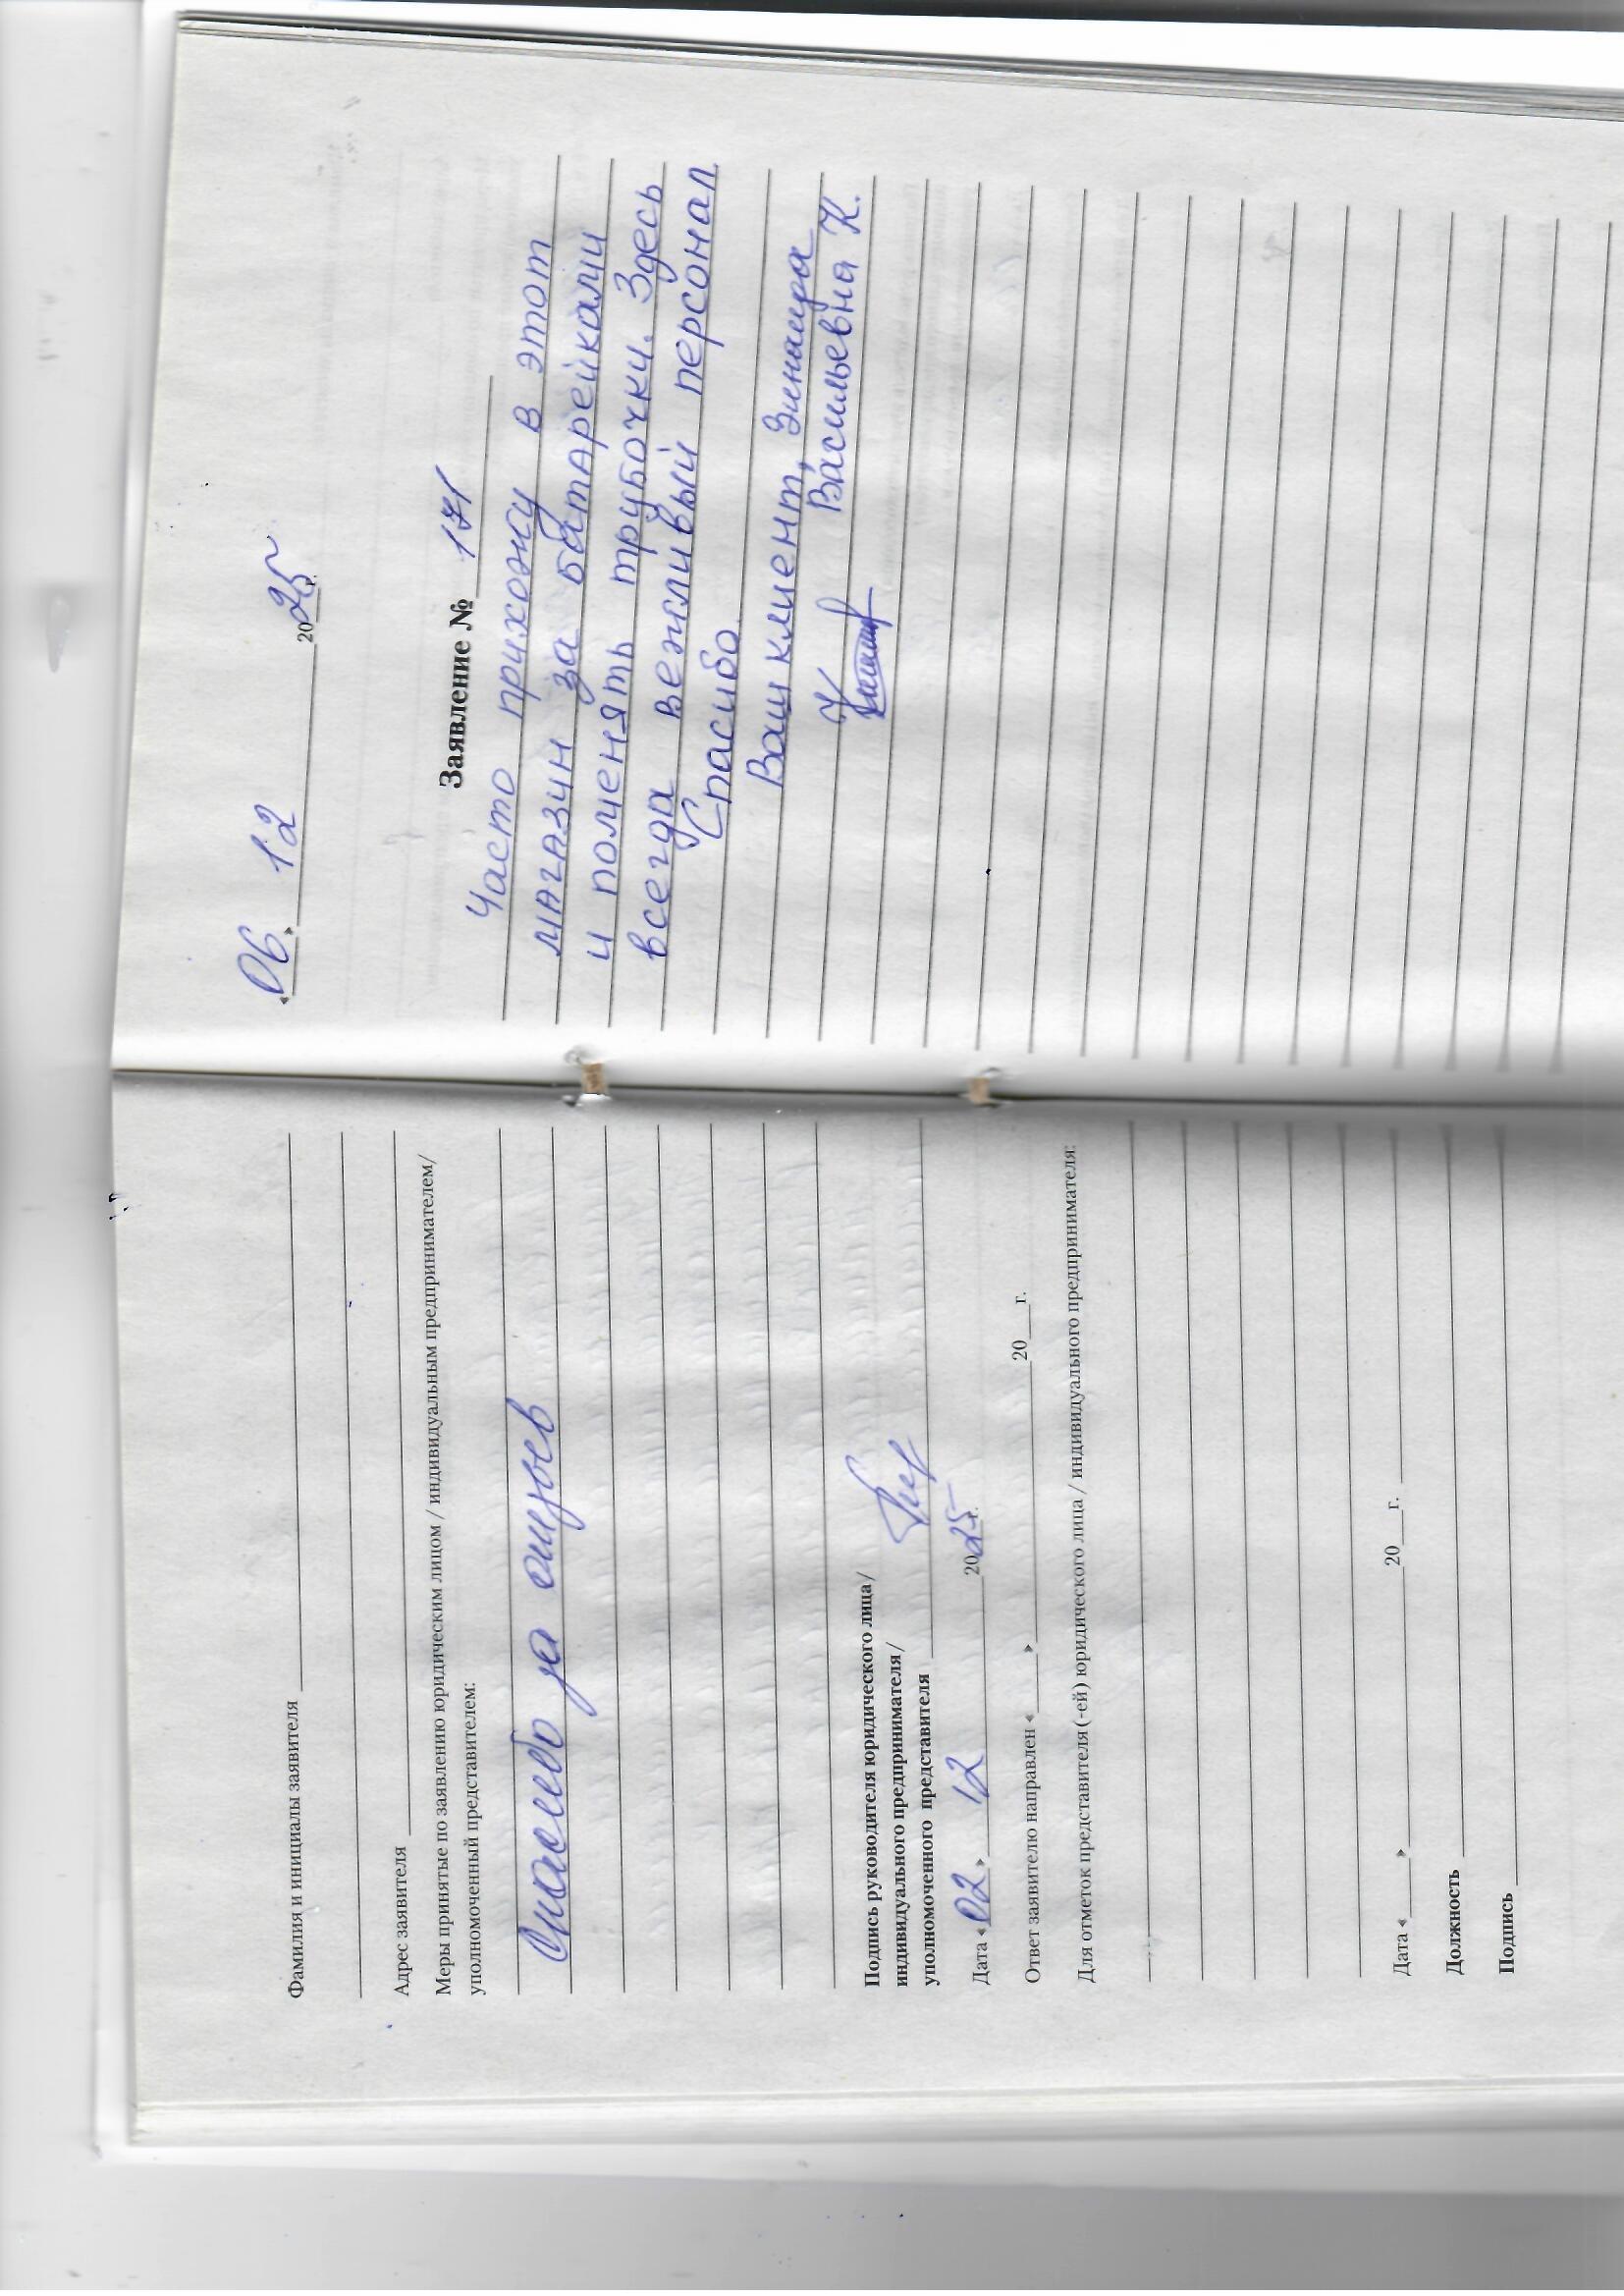 Фамилия и инициалы заявителя
Адрес заявителя
Меры принятые по заявлению юридическим лицом / индивидуальным предпринимателем/
уполномоченный представителем:
Спасибо за отзыв
Подпись руководителя юридического лица/
индивидуального предпринимателя/
уполномоченного представителя
Дата «02» 12 2025 г.
Ответ заявителю направлен «____»____ 20__г.
Для отметок представителя(-ей) юридического лица / индивидуального предпринимателя:
Дата «____»____ 20__г.
Должность
Подпись
«06» 12 2025 г.
Заявление № 171
Часто прихожу в этот
магазин за батарейками
и поменять трубочки. Здесь
всегда вежливый персонал.
Спасибо.
Ваш клиент, Зинаира
Васильевна К.